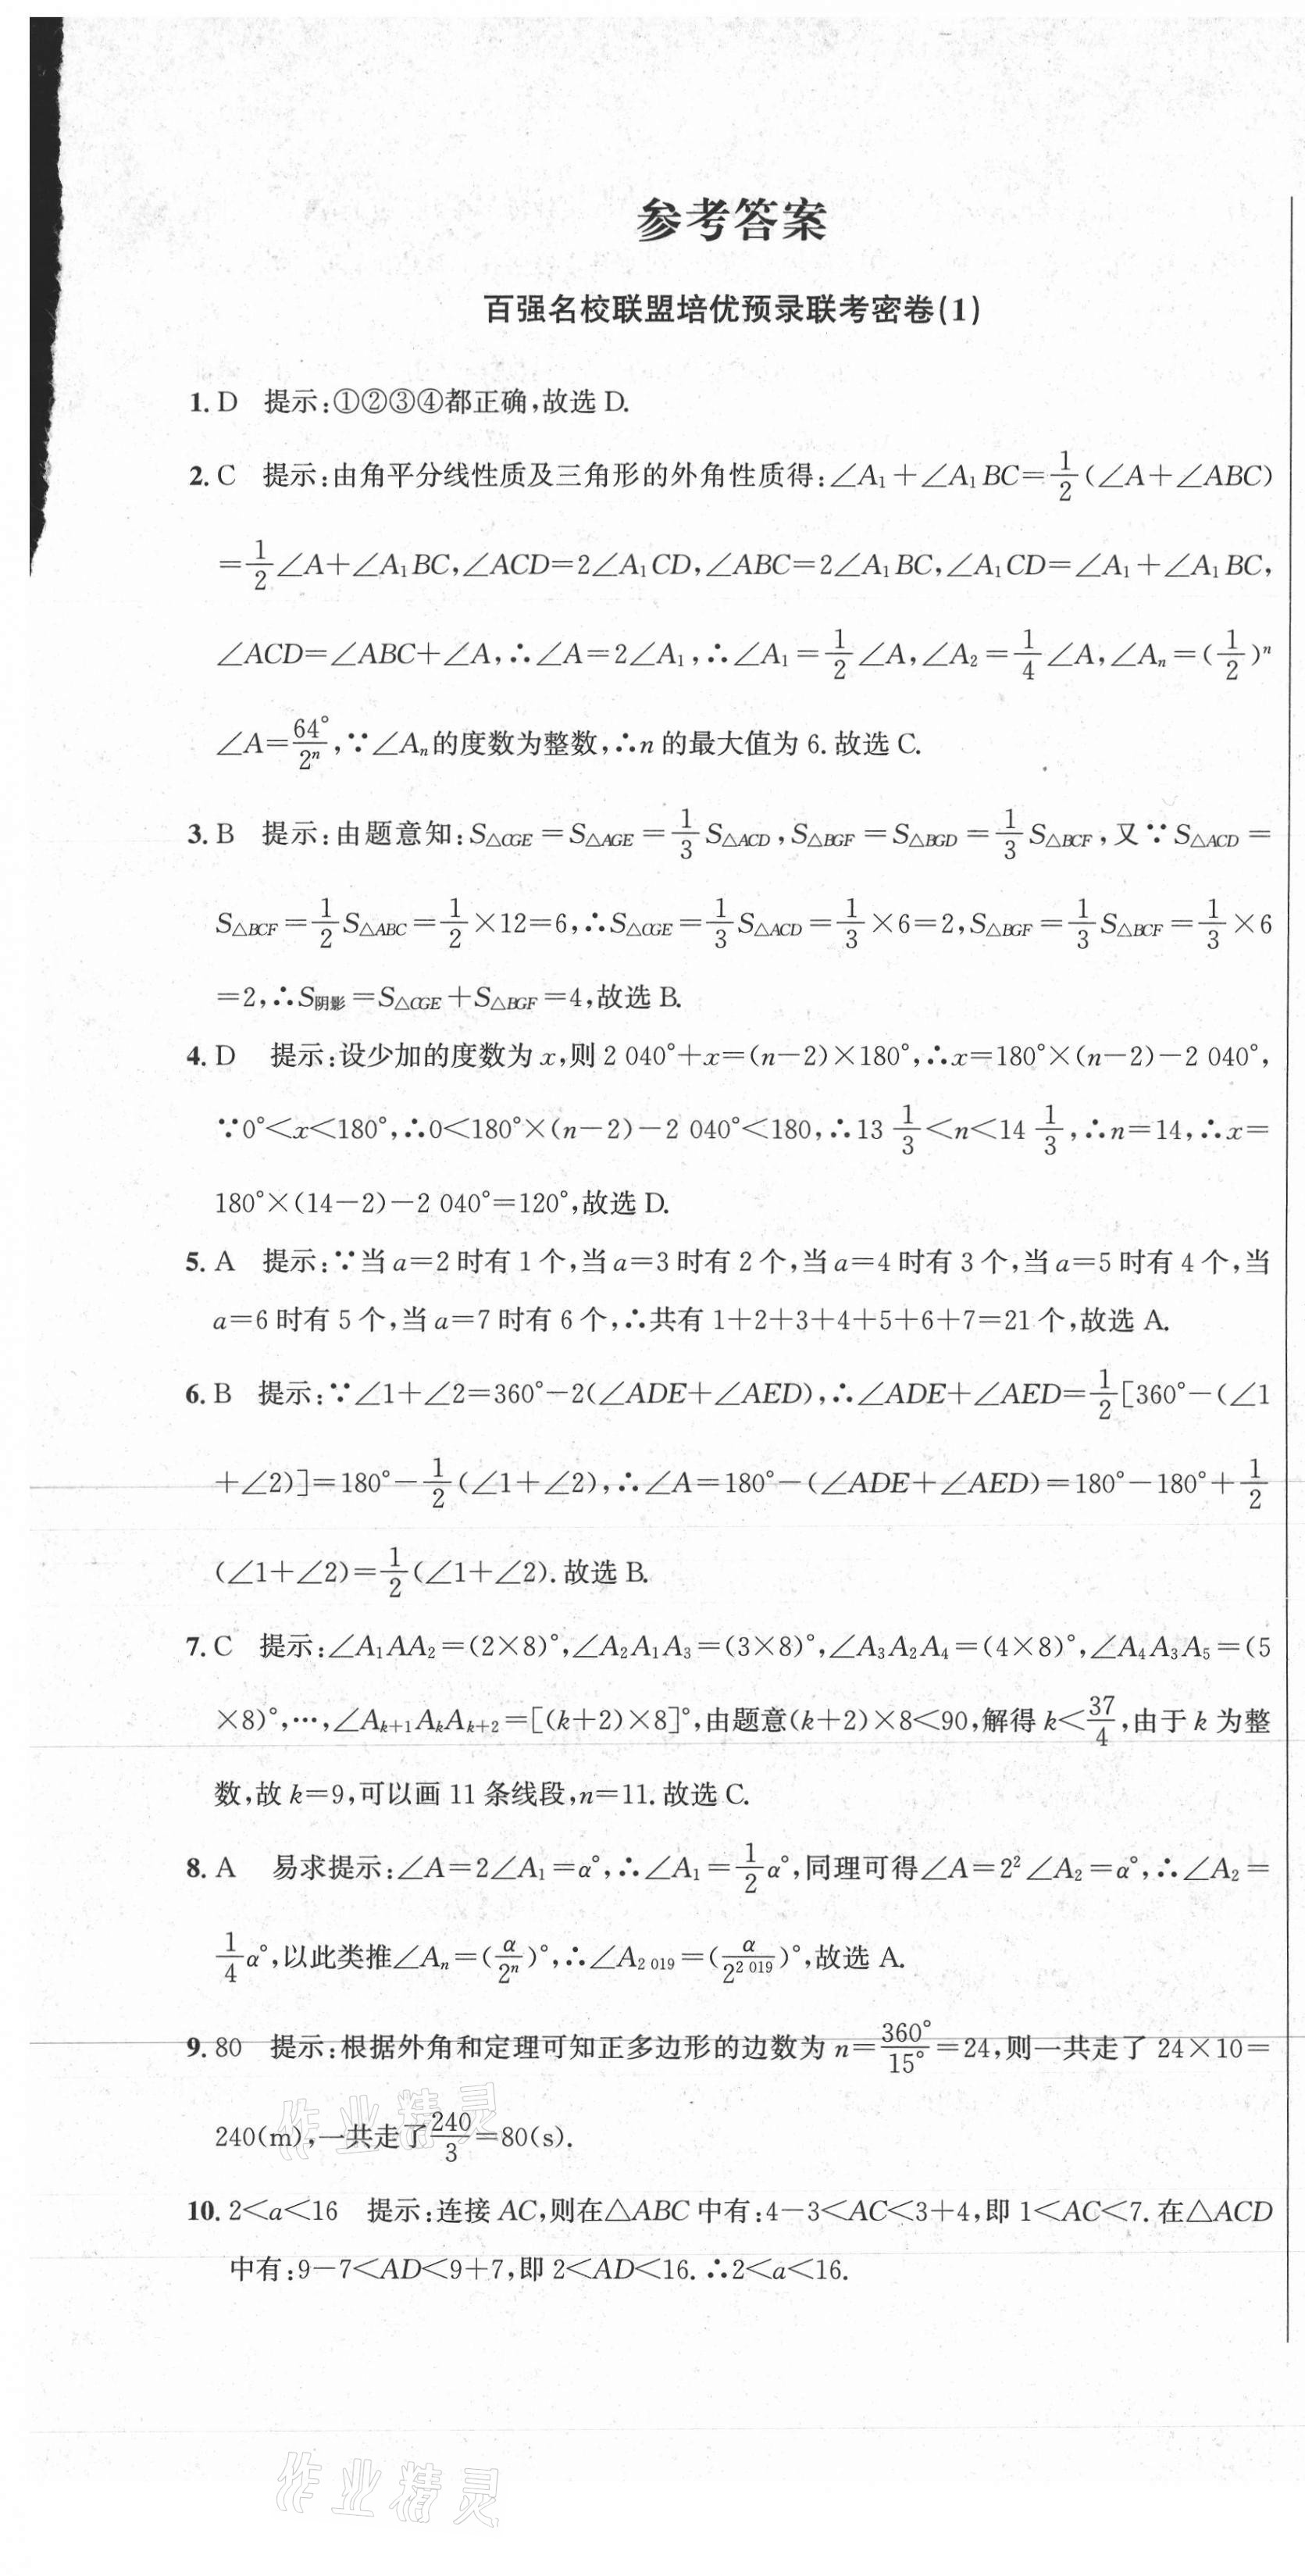 参考答案
百强名校联盟培优预录联考密卷(1)
1. D 提示:①②③④都正确,故选 D.
2. C 提示:由角平分线性质及三角形的外角性质得:∠A₁+∠A₁BC=1/2(∠A+∠ABC)
=1/2∠A+∠A₁BC,∠ACD=2∠A₁CD,∠ABC=2∠A₁BC,∠A₁CD=∠A₁+∠A₁BC,
∠ACD=∠ABC+∠A,∴∠A=2∠A₁,∴∠A₁=1/2∠A,∠A₂=1/4∠A,∠Aₙ=(1/2)ⁿ
∠A=64°/2ⁿ,∵∠Aₙ的度数为整数,∴n 的最大值为 6.故选 C.
3. B 提示:由题意知:S△CGE=S△AGE=1/3 S△ACD,S△BGF=S△BGD=1/3 S△BCF,又∵S△ACD=
S△BCF=1/2 S△ABC=1/2×12=6,∴S△CGE=1/3 S△ACD=1/3×6=2,S△BGF=1/3 S△BCF=1/3×6
=2,∴S阴影=S△CGE+S△BGF=4,故选 B.
4. D 提示:设少加的度数为 x,则 2 040°+x=(n-2)×180°,∴x=180°×(n-2)-2 040°,
∵0°<x<180°,∴0<180°×(n-2)-2 040°<180,∴13 1/3<n<14 1/3,∴n=14,∴x=
180°×(14-2)-2 040°=120°,故选 D.
5. A 提示:∵当 a=2 时有 1 个,当 a=3 时有 2 个,当 a=4 时有 3 个,当 a=5 时有 4 个,当
a=6 时有 5 个,当 a=7 时有 6 个,∴共有 1+2+3+4+5+6+7=21 个,故选 A.
6. B 提示:∵∠1+∠2=360°-2(∠ADE+∠AED),∴∠ADE+∠AED=1/2[360°-(∠1
+∠2)]=180°-1/2(∠1+∠2),∴∠A=180°-(∠ADE+∠AED)=180°-180°+1/2
(∠1+∠2)=1/2(∠1+∠2).故选 B.
7. C 提示:∠A₁AA₂=(2×8)°,∠A₂A₁A₃=(3×8)°,∠A₃A₂A₄=(4×8)°,∠A₄A₃A₅=(5
×8)°,…,∠Aₖ₊₁AₖAₖ₊₂=[(k+2)×8]°,由题意(k+2)×8<90,解得 k<37/4,由于 k 为整
数,故 k=9,可以画 11 条线段,n=11.故选 C.
8. A 易求提示:∠A=2∠A₁=α°,∴∠A₁=1/2α°,同理可得∠A=2²∠A₂=α°,∴∠A₂=
1/4α°,以此类推∠Aₙ=(α/2ⁿ)°,∴∠A₂ ₀₁₉=(α/2² ⁰¹⁹)°,故选 A.
9. 80 提示:根据外角和定理可知正多边形的边数为 n=360°/15°=24,则一共走了 24×10=
240(m),一共走了240/3=80(s).
10. 2<a<16 提示:连接 AC,则在△ABC 中有:4-3<AC<3+4,即 1<AC<7.在△ACD
中有:9-7<AD<9+7,即 2<AD<16.∴2<a<16.
作业精灵
作业精灵